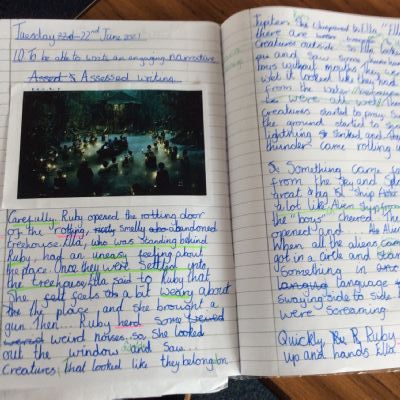 Tuesday 22nd June 2021
LO To be able to write an engaging narrative
Assessed writing
Carefully, Ruby opened the rotting door
of the rotting, smelly abandoned
treehouse. Ella, who was standing behind
Ruby, had an uneasy feeling about
the place. Once they were settled into
the treehouse, Ella said to Ruby that
She felt a bit weary about
the place, and she brought a
gun. Then... Ruby herd some
weird noises. so she looked
out the window and saw...
Creatures, that looked like they belonged on
Jupiter. She whispered to Ella, "Ella
there are
creatures outside so Ella looked
and saw some
boys without mouths. They were
wet it looked like they had
from the water
be were all wet! Then
creatures started to pray. Su
the ground started to s
lightning started and
thunder came rolling
Something came
from the sky and
great big ship
a lot like Alien ship from
the "boys" cheered. The
opened and Alien
When all the aliens came
got in a circle and star
Something in
language
swaying side to side
were screaming.
Quickly Ruby
up and hands Ella